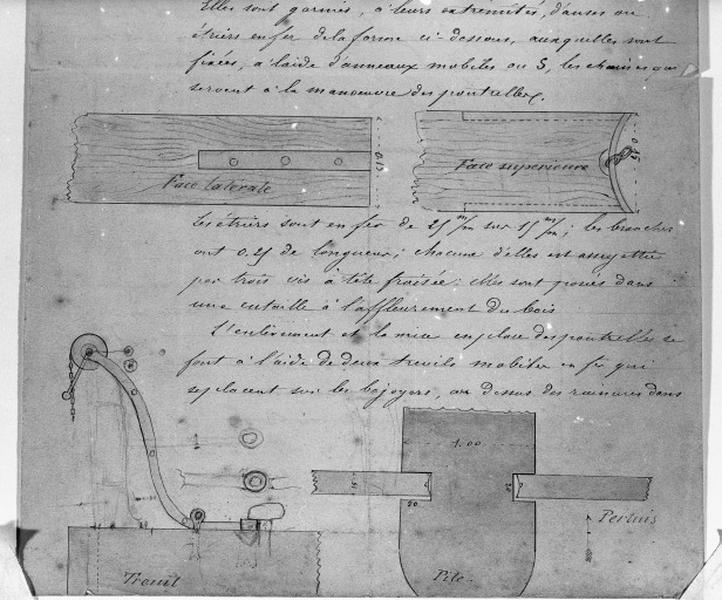 Elles sont garnies, à leurs extrémités, d'anses ou
étriers en fer de la forme ci-dessous, auxquelles sont
fixées, à l'aide d'anneaux mobiles ou S, les chaines qui
servent à la manœuvre des poutrelles.
0.15
0.15
Face latérale
Face supérieure
Les étriers sont en fer de 25 m/m sur 15 m/m; les branches
ont 0.25 de longueur; chacune d'elles est assujettie
par trois vis à tête fraisée: elles sont posées dans
une entaille à l'affleurement du bois
L'enlèvement et la mise en place des poutrelles se
font à l'aide de deux treuils mobiles en fer qui
se placent sur les bajoyers, au dessus des rainures dans
1.00
15
20
20
Pertuis
Treuil
Pile.